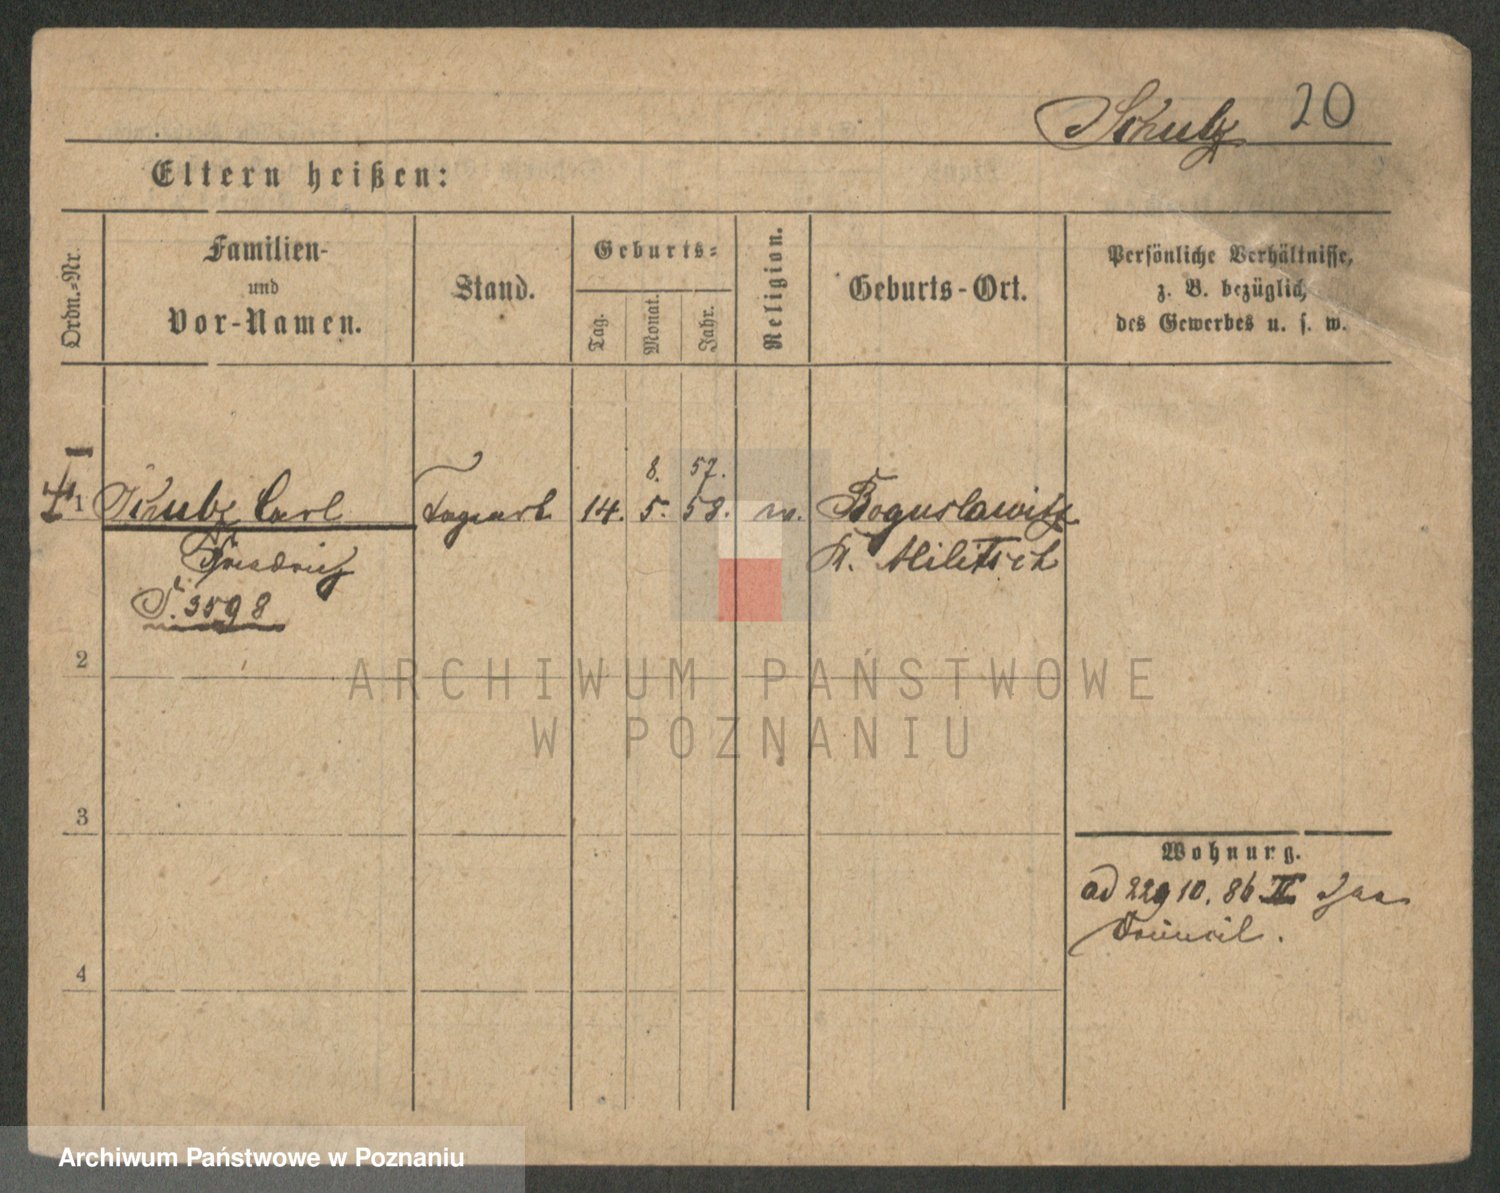 Schulz 20
Eltern heißen:
Ordn.-Nr.
Familien-
und
Vor-Namen.
Stand.
Geburts-
Tag.
Monat.
Jahr.
Religion.
Geburts-Ort.
Persönliche Verhältnisse,
z. B. bezüglich
des Gewerbes u. s. w.
8. 57.
1 Schulz Carl Tagearb 14. 5. 58. Boguslawitz
Friedrich Kr. Militsch
3598
2
3
4
Wohnung.
ad 229 10. 86 II
ARCHIWUM PAŃSTWOWE
W POZNANIU
Archiwum Państwowe w Poznaniu